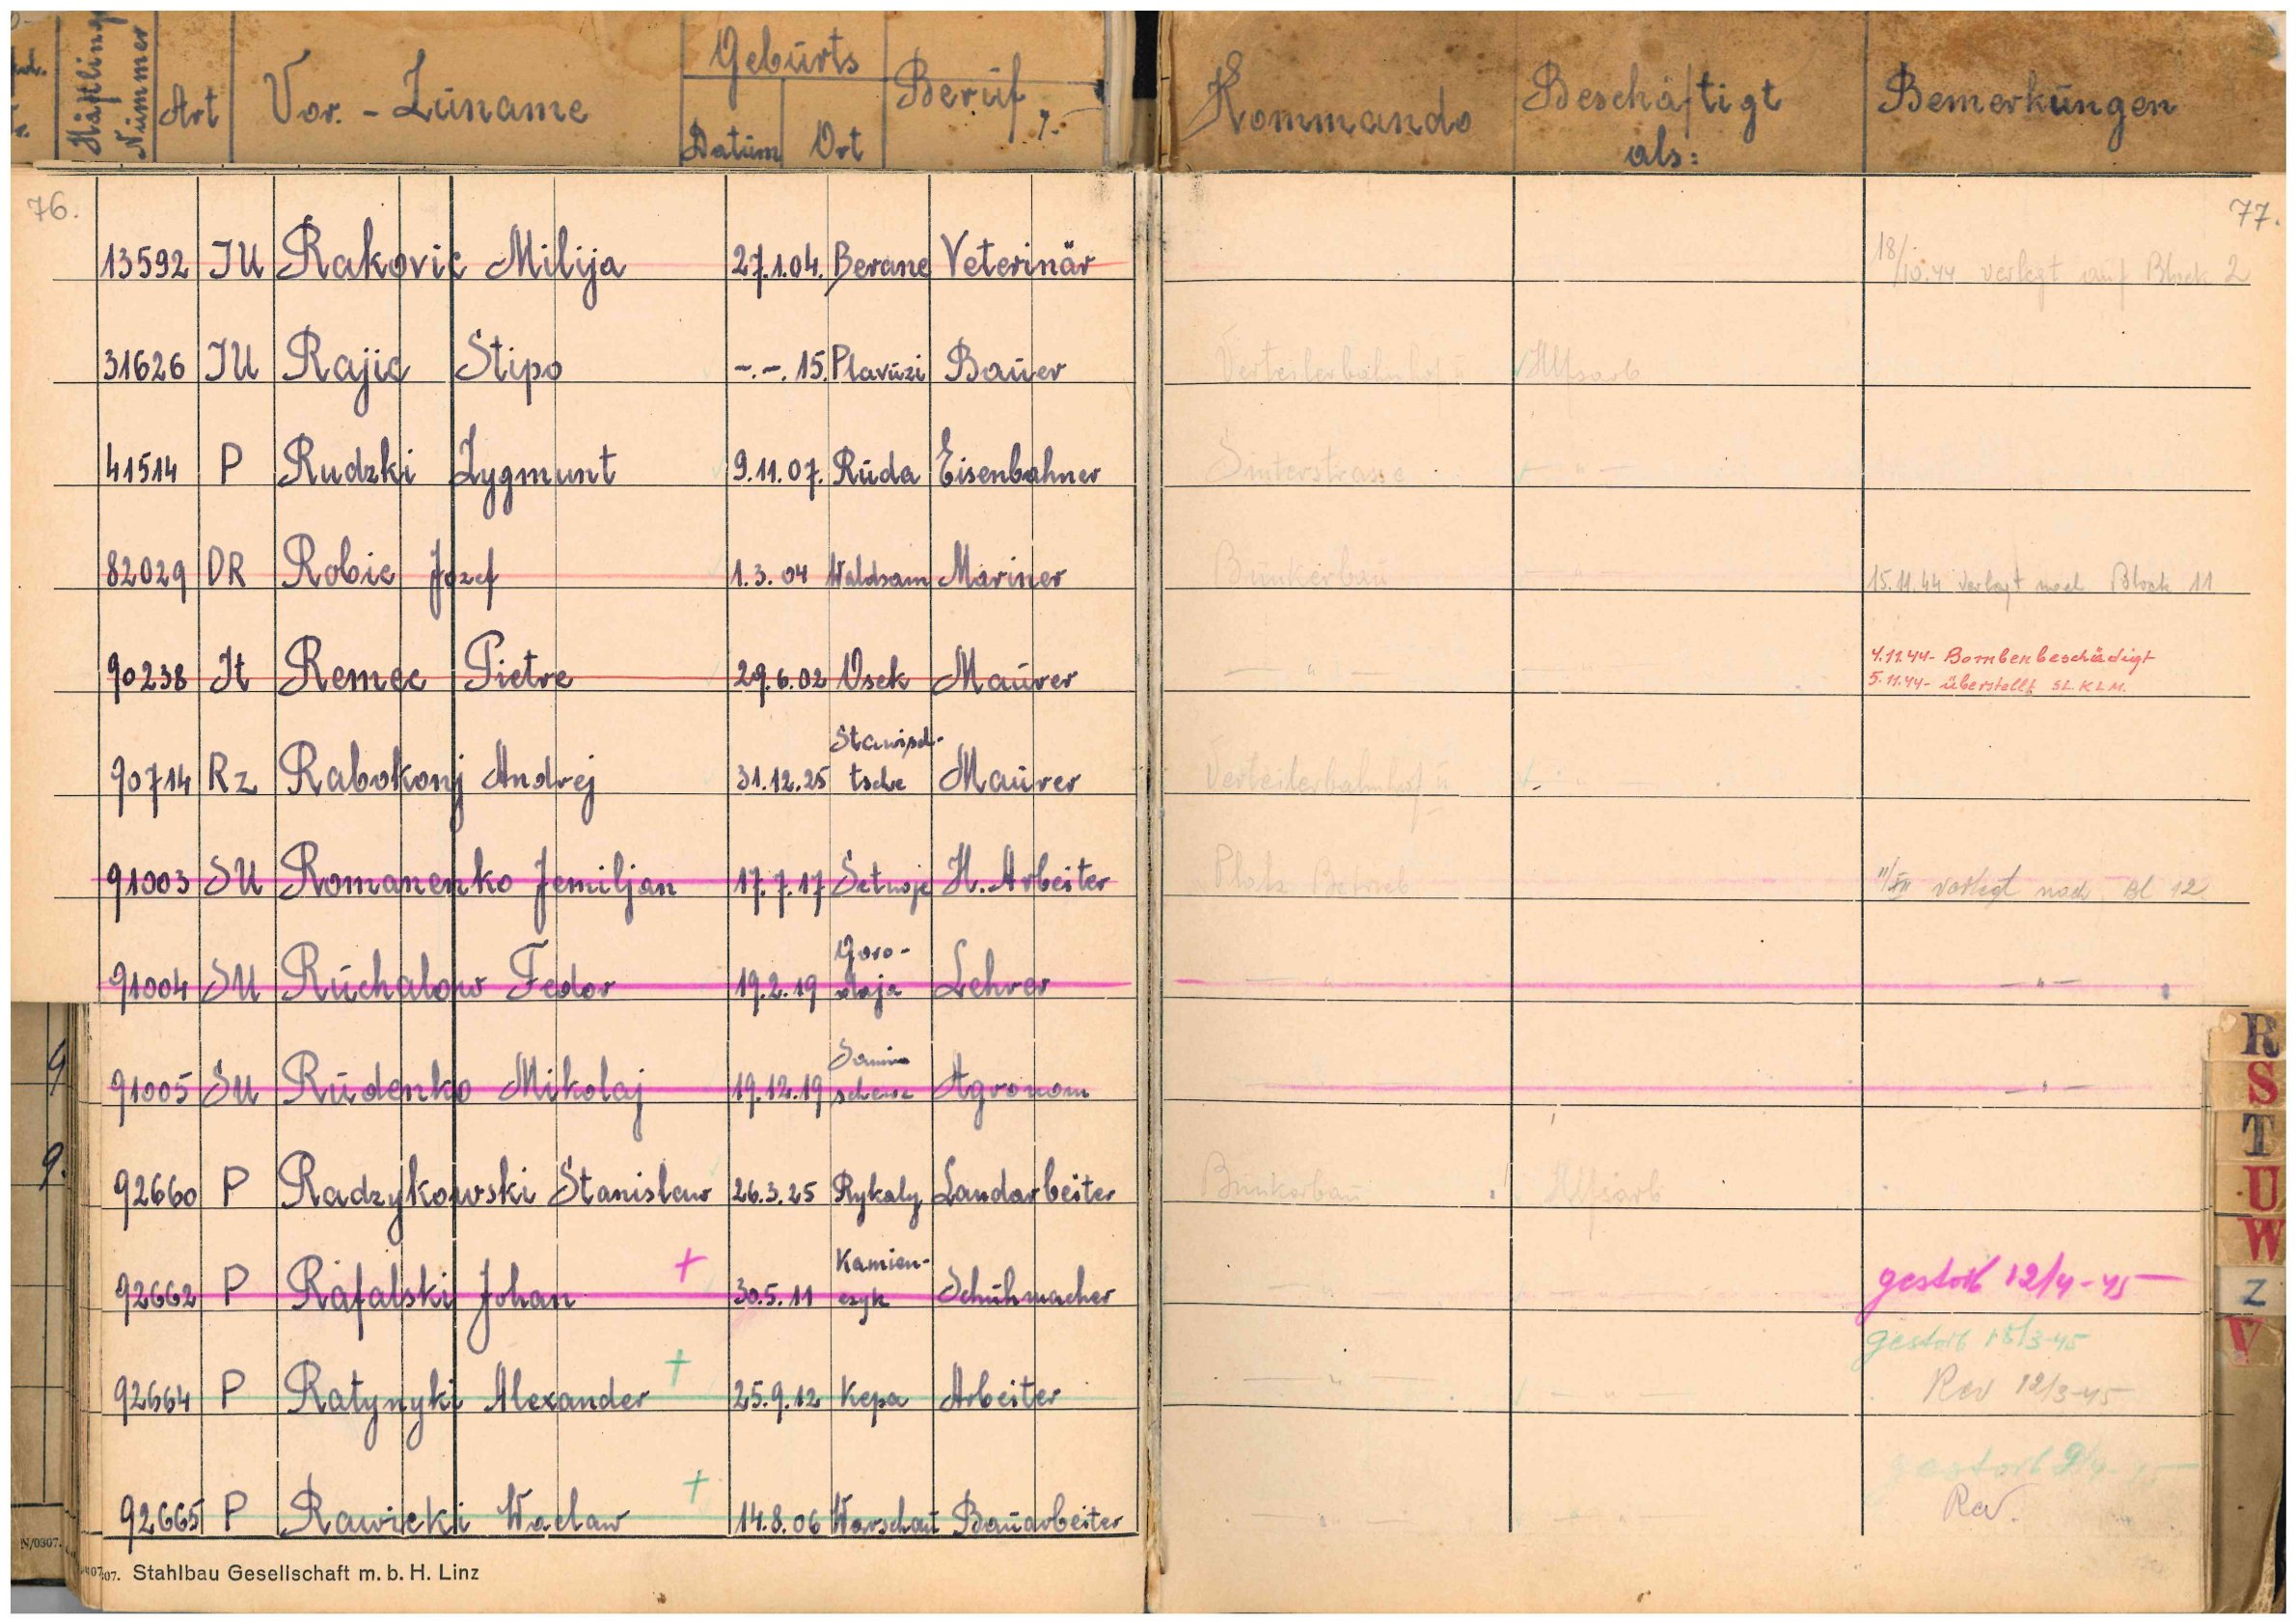 Häftling Nummer Art Vor. - Zuname Geburts Datum Ort Beruf Kommando Beschäftigt als: Bemerkungen
76. 77.
13592 JU Rakovic Milija 27.1.04. Berane Veterinär 18/10.44 verlegt auf Block 2
31626 JU Rajic Stipo -.-. 15. Plavuzi Bauer Verteilerbahnhof II Hlfsarb
41514 P Rudzki Zygmunt 9.11.07. Ruda Eisenbahner Sinterstrasse — " —
82029 DR Robie Jozef 1.3.04 Waldsam Mariner Bunkerbau — " — 15.11.44 verlegt nach Block 11
90238 It Remec Pietre 29.6.02 Osek Maurer — " — — " — 4.11.44- Bombenbeschädigt
5.11.44- überstellt SL. KLM.
90714 Rz Rabokonj Andrej 31.12.25 Stawisch-
tsche Maurer Verteilerbahnhof II — " —
91003 SU Romanenko Jemiljan 17.7.17 Setnoje H. Arbeiter Platz Betrieb 11/XII verlegt nach Bl 12
91004 SU Ruchalow Fedor 19.2.19 Goro-
Lehrer — " — — " —
91005 SU Rudenko Mikolaj 19.12.19 Agronom — " —
92660 P Radzykowski Stanislaw 26.3.25 Rykaly Landarbeiter Bunkerbau Hlfsarb
92662 P Rafalski Johan + 30.5.11 Kamien-
czyk Schuhmacher — " — gestorb 12/4-45
92664 P Ratynyki Alexander + 25.9.12 Kepa Arbeiter — " — — " — gestorb 15/3-45
Rev 12/3-45
92665 P Rawicki Waclaw + 14.8.06 Warschau Bauarbeiter — " — — " — gestorb 9/4-45
Rev.
R
S
T
U
W
Z
V
N/0307.
Stahlbau Gesellschaft m. b. H. Linz